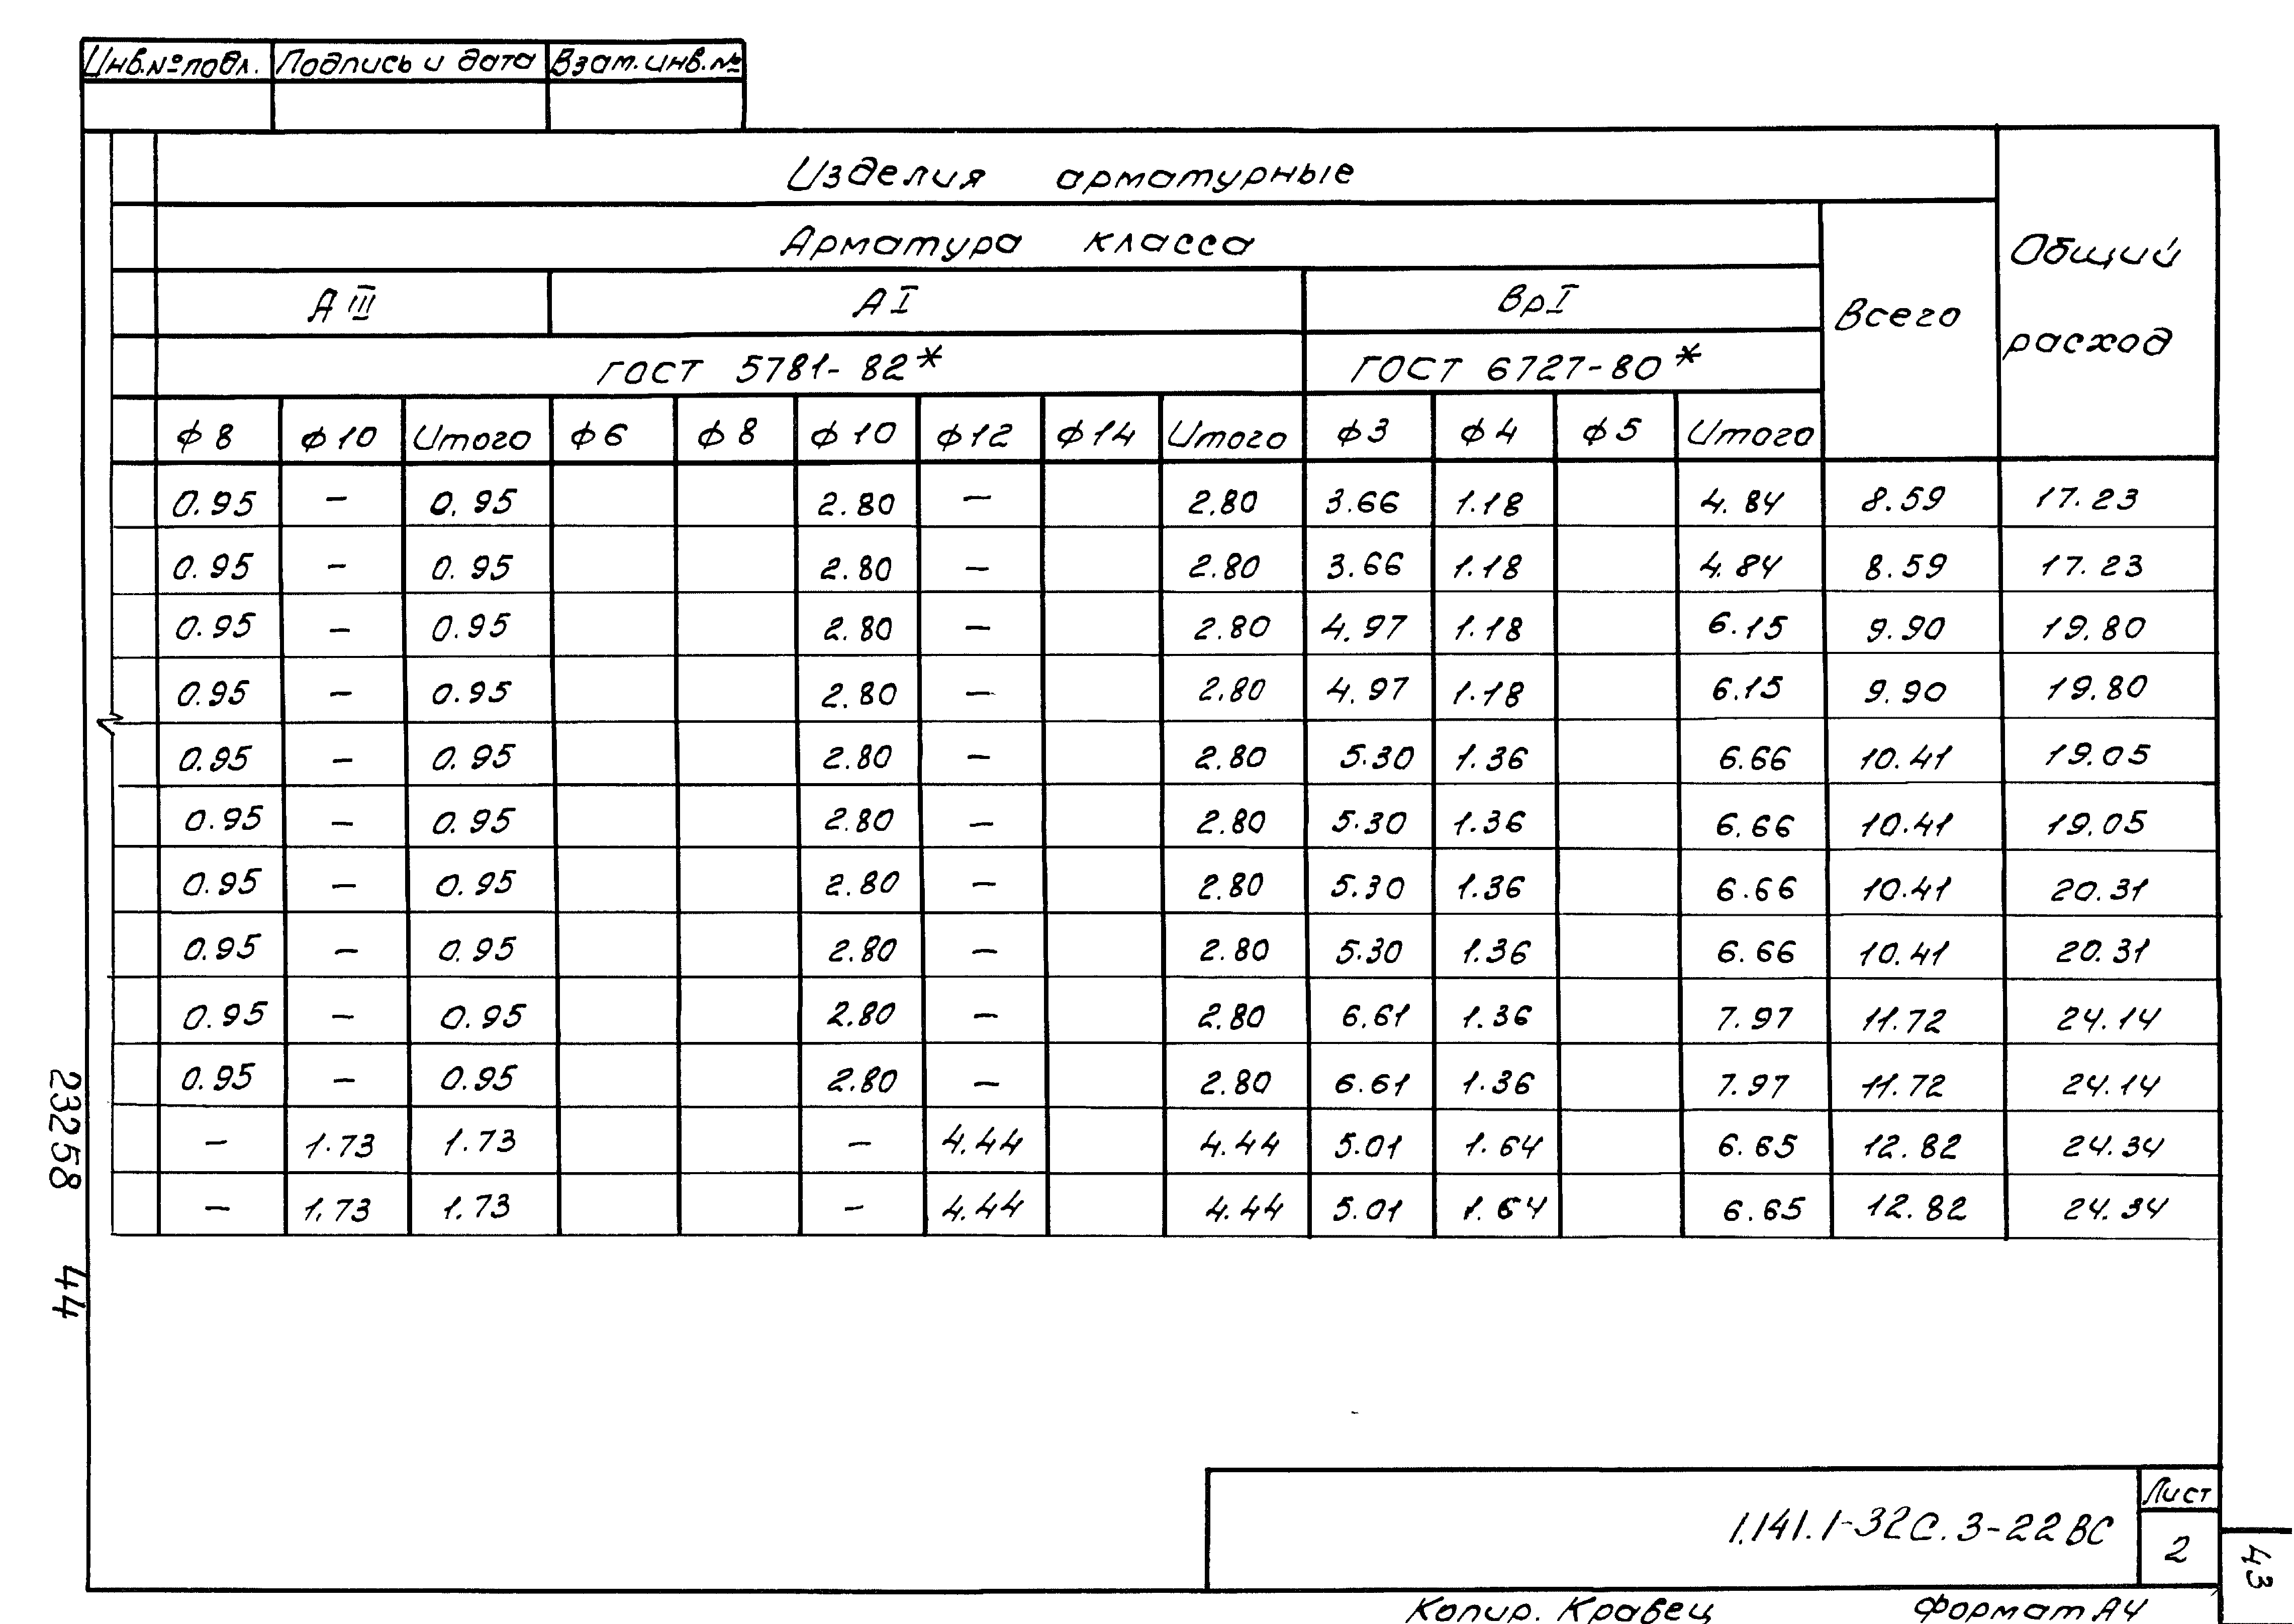 Инв.№подл. Подпись и дата Взам.инв.№
Изделия арматурные
Общий расход
Арматура класса
Всего
АIII АI ВрI
ГОСТ 5781-82* ГОСТ 6727-80*
ф8 ф10 Итого ф6 ф8 ф10 ф12 ф14 Итого ф3 ф4 ф5 Итого
0.95 – 0.95 2.80 – 2.80 3.66 1.18 4.84 8.59 17.23
0.95 – 0.95 2.80 – 2.80 3.66 1.18 4.84 8.59 17.23
0.95 – 0.95 2.80 – 2.80 4.97 1.18 6.15 9.90 19.80
0.95 – 0.95 2.80 – 2.80 4.97 1.18 6.15 9.90 19.80
0.95 – 0.95 2.80 – 2.80 5.30 1.36 6.66 10.41 19.05
0.95 – 0.95 2.80 – 2.80 5.30 1.36 6.66 10.41 19.05
0.95 – 0.95 2.80 – 2.80 5.30 1.36 6.66 10.41 20.31
0.95 – 0.95 2.80 – 2.80 5.30 1.36 6.66 10.41 20.31
0.95 – 0.95 2.80 – 2.80 6.61 1.36 7.97 11.72 24.14
0.95 – 0.95 2.80 – 2.80 6.61 1.36 7.97 11.72 24.14
– 1.73 1.73 – 4.44 4.44 5.01 1.64 6.65 12.82 24.34
– 1.73 1.73 – 4.44 4.44 5.01 1.64 6.65 12.82 24.34
23258 44
1.141.1-32С.3-22ВС
Лист
2
43
Копир. Кравец Формат А4